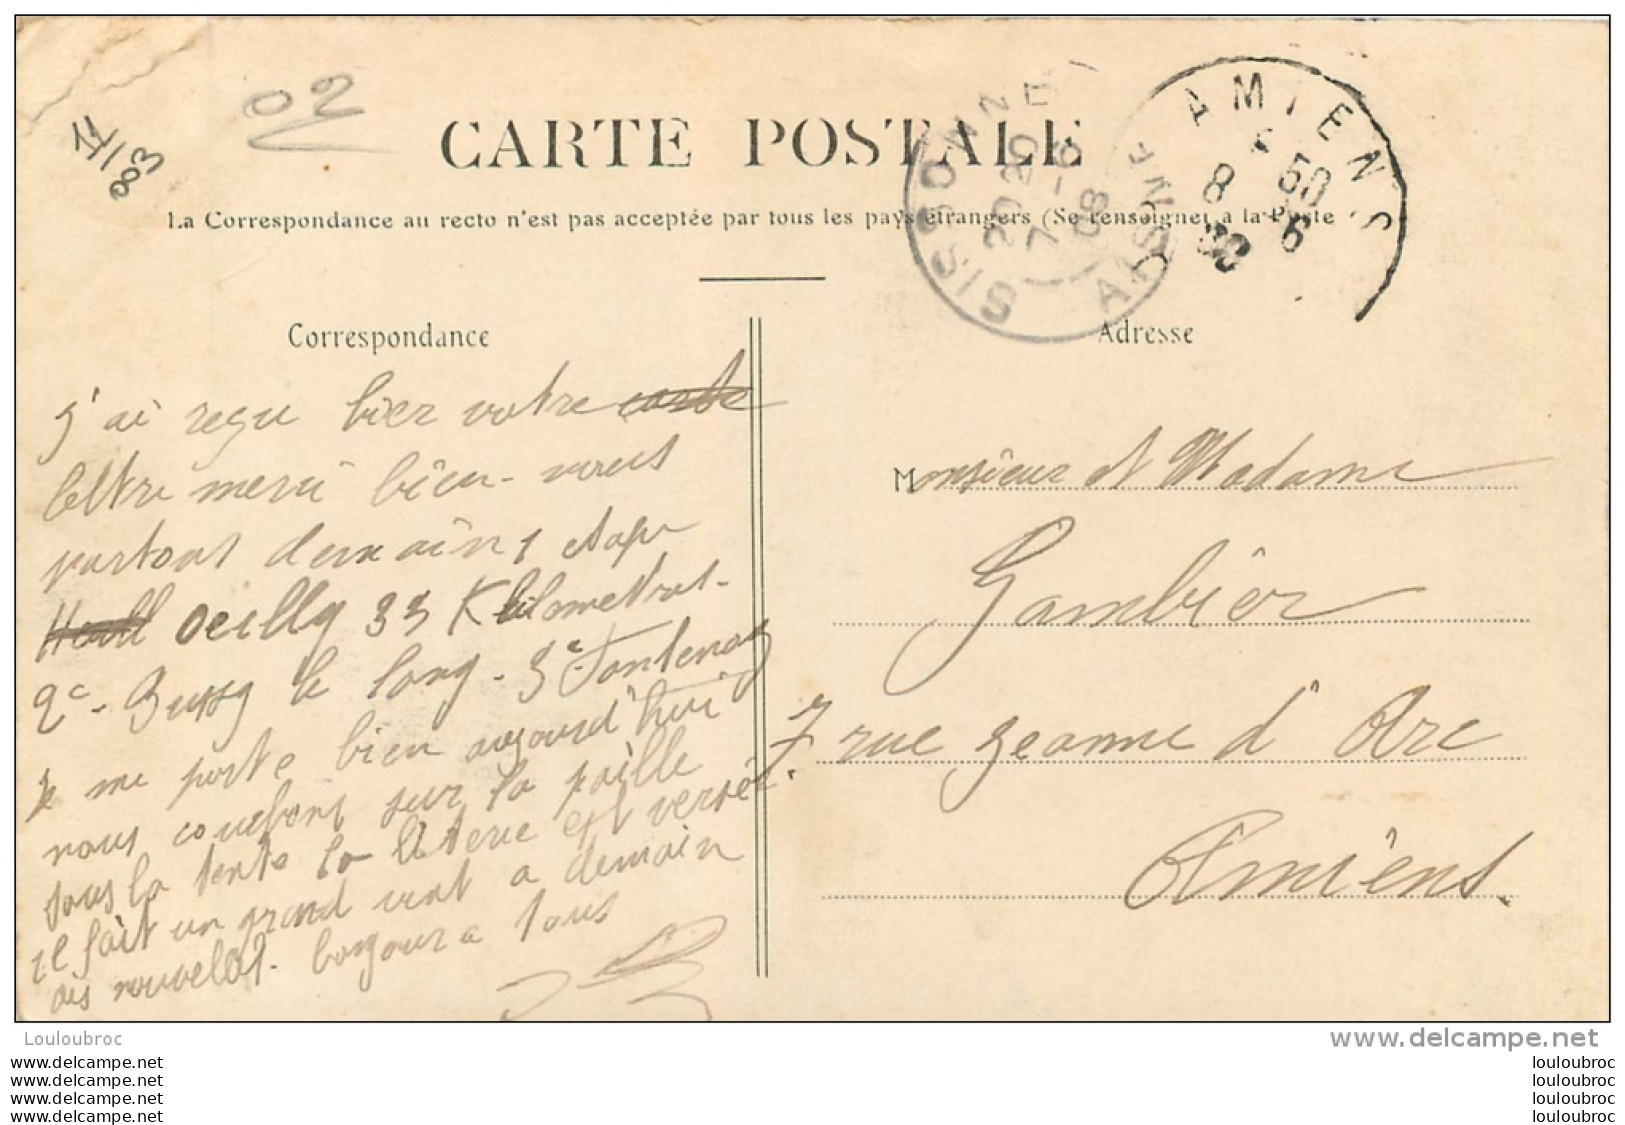 02
11/
883
CARTE POSTALE
La Correspondance au recto n'est pas acceptée par tous les pays étrangers (Se renseigner a la Poste
SISSONNE
20 20
7 - 6
08
AISNE
AMIENS
8 50
8 6
Correspondance
Adresse
J'ai reçu hier votre carte
lettre merci bien. nous
partons demain 1 etape
Oeilly 33 Kilometres.
2e - Bussy le long - 3e Fontenoy
je me porte bien aujourd'hui
nous couchons sur la paille
sous la tente la literie est versée.
il fait un grand vent a demain
des nouvelles. bonjour a tous
Monsieur et Madame
Gambier
7 rue Jeanne d'Arc
Amiens.
Louloubroc
www.delcampe.net
www.delcampe.net
www.delcampe.net
www.delcampe.net
www.delcampe.net
louloubroc
louloubroc
louloubroc
louloubroc